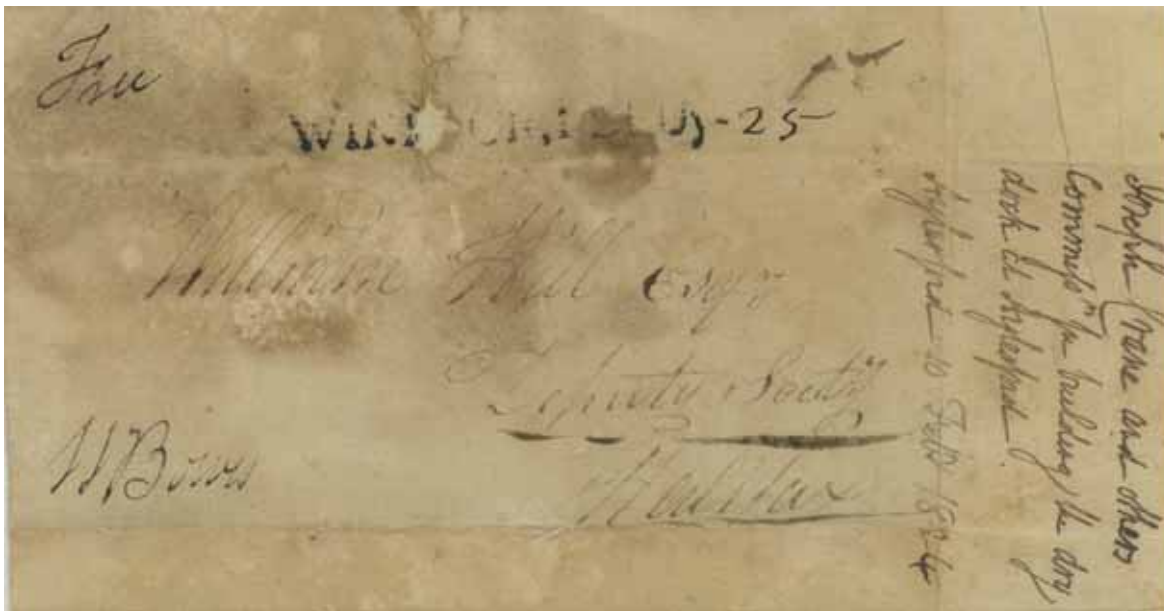 Free
WIND
25
William Hill Esqr
Deputy Secty
Halifax
W Bowes
Joseph Crane and others
Commissn for building the dry
dock at
10 Feb 1824